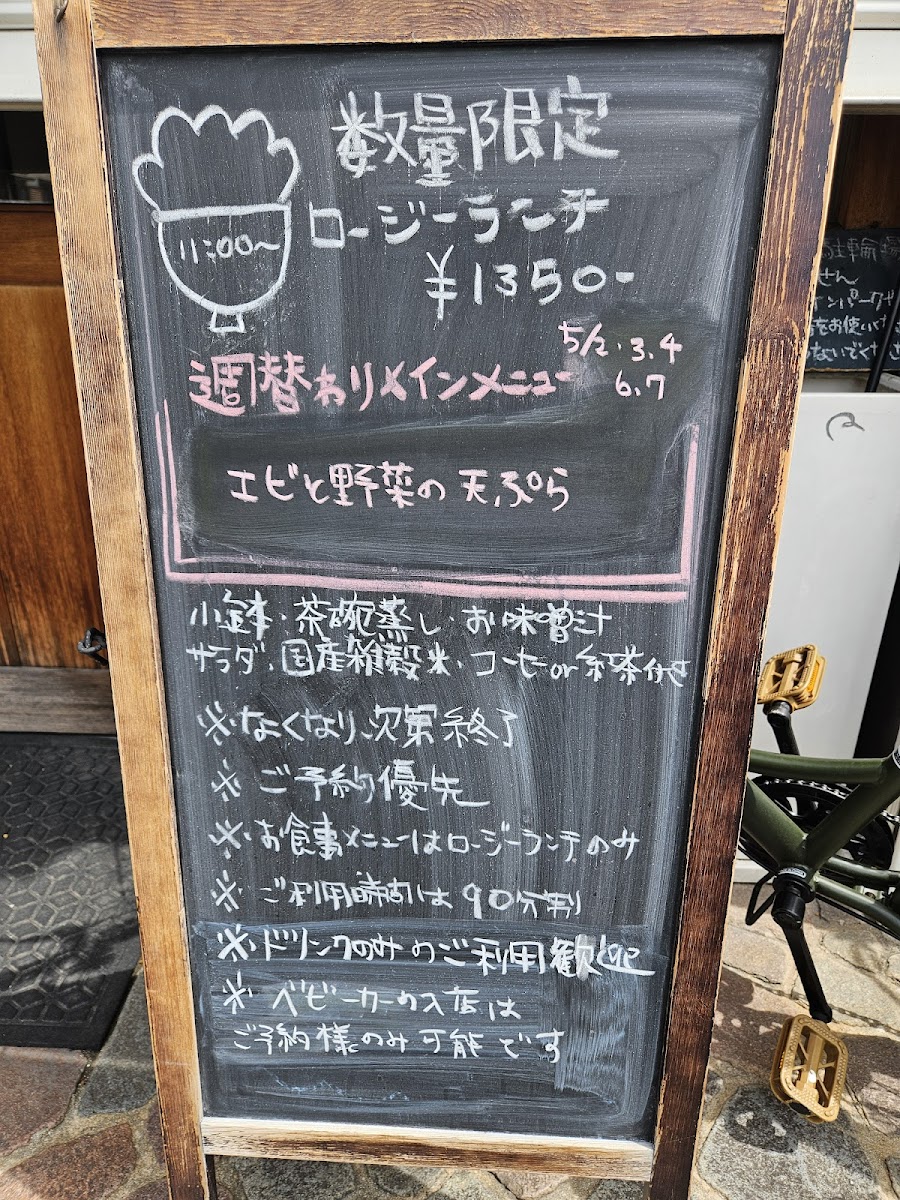 数量限定
11:00~
ロージーランチ
¥1350-
5/2.3.4
6.7
週替わりメインメニュー
エビと野菜の天ぷら
小鉢・茶碗蒸し・お味噌汁
サラダ・国産雑穀米・コーヒーor紅茶付き
※なくなり次第終了
※ご予約優先
※お食事メニューはロージーランチのみ
※ご利用時間は90分制
※ドリンクのみのご利用歓迎
※ベビーカーの入店は
ご予約様のみ可能です
せん
をお使いくださ
ないでくださ